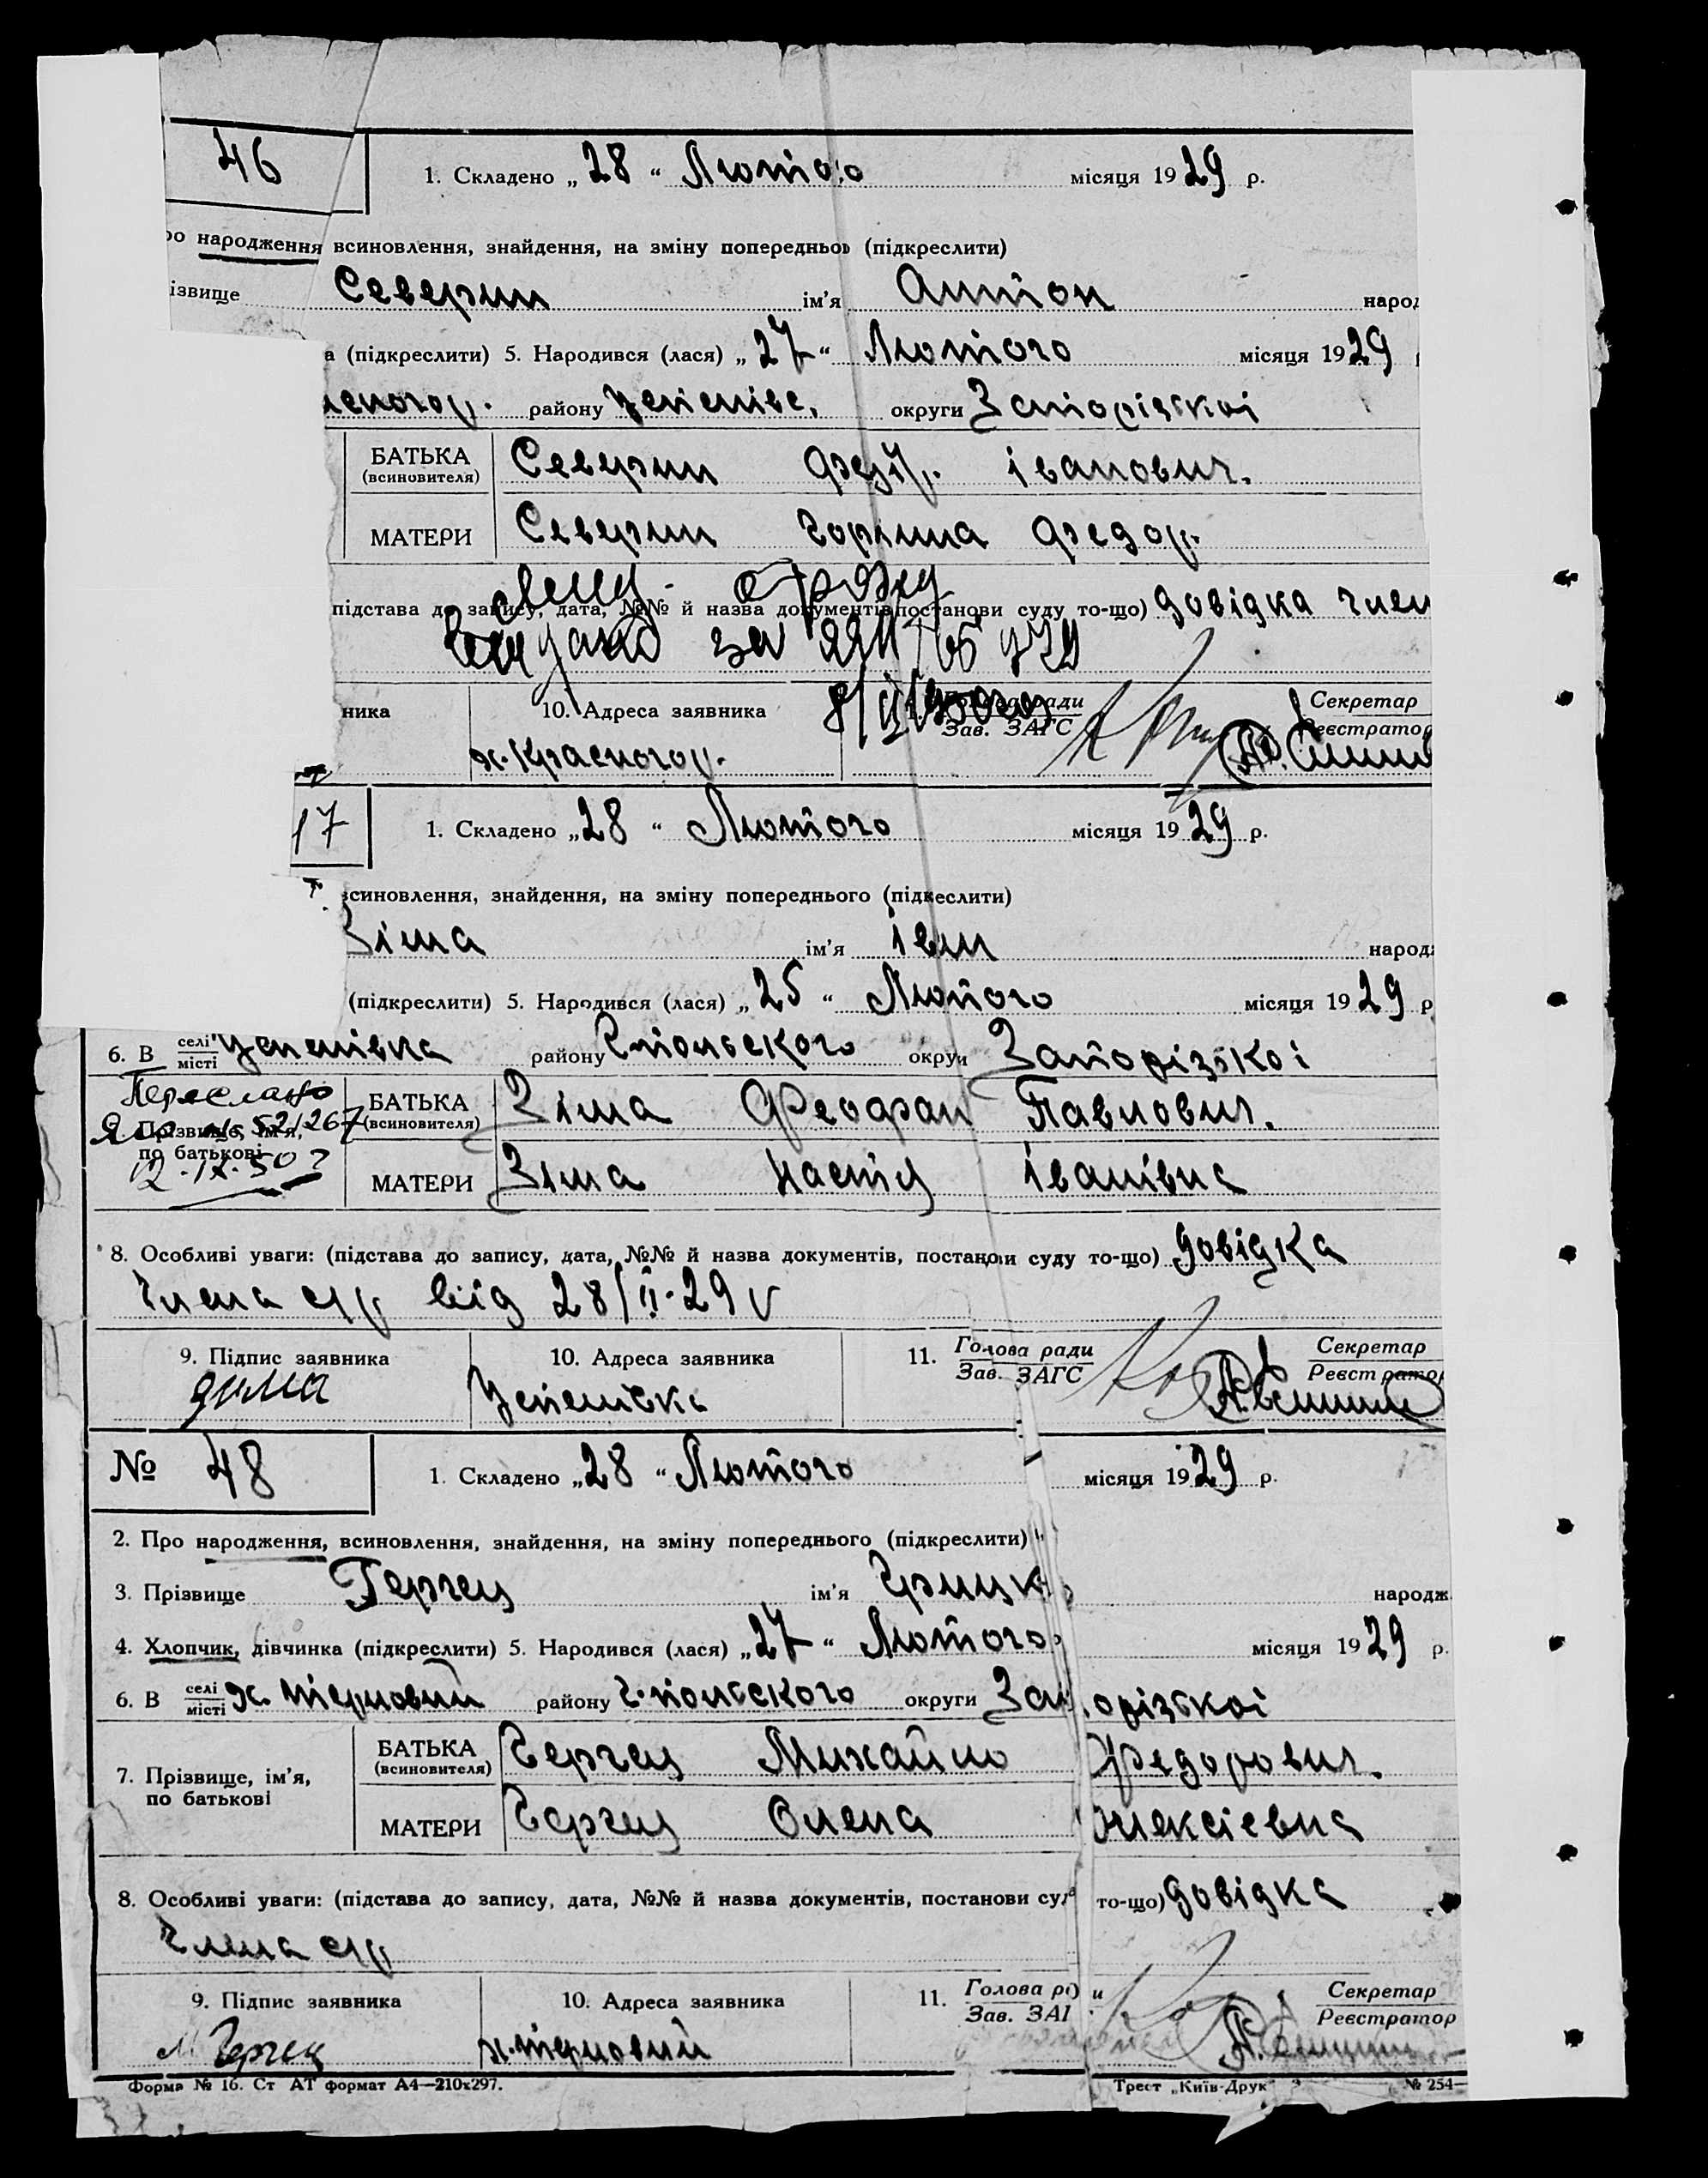 46
1. Складено „ 28 “ Лютого місяця 19 29 р.
ро народження всиновлення, знайдення, на зміну попередньо (підкреслити)
ізвище Северин ім'я Антон народ
а (підкреслити) 5. Народився (лася) „ 27 “ Лютого місяця 19 29
району Успенівс. округи Запорізької
БАТЬКА (всиновителя) Северин Федір. Іванович.
МАТЕРИ Северин Горпина Федор.
підстава до запису, дата, №№ й назва документів постанови суду то-що) довідка член
ника 10. Адреса заявника Голова ради Зав. ЗАГС Секретар Реєстратор
х. Красногор.
17
1. Складено „ 28 “ Лютого місяця 19 29 р.
всиновлення, знайдення, на зміну попереднього (підкеслити)
Зіма ім'я Іван народ
(підкреслити) 5. Народився (лася) „ 25 “ Лютого місяця 19 29 р
6. В селі місті Успенівка району Гпольського округи Запорізької
Переслано
БАТЬКА (всиновителя) Зіма Феофан Павлович.
Прізвище, ім'я, по батькові
МАТЕРИ Зіма Настя Іванівна
8. Особливі уваги: (підстава до запису, дата, №№ й назва документів, постанови суду то-що) довідка
члена с/р від 28/II-29 р
9. Підпис заявника 10. Адреса заявника 11. Голова ради Зав. ЗАГС Секретар Реєстратор
Успенівка
№ 48
1. Складено „ 28 “ Лютого місяця 19 29 р.
2. Про народження, всиновлення, знайдення, на зміну попереднього (підкреслити)
3. Прізвище Герчец ім'я Грицко народж.
4. Хлопчик, дівчинка (підкреслити) 5. Народився (лася) „ 27 “ Лютого місяця 19 29 р.
6. В селі місті х. Терновий району Г-польського округи Запорізької
БАТЬКА (всиновителя) Герчец Михайло Федорович.
7. Прізвище, ім'я, по батькові
МАТЕРИ Герчец Олена Олексієвна
8. Особливі уваги: (підстава до запису, дата, №№ й назва документів, постанови суд то-що) довідка
члена с/р
9. Підпис заявника 10. Адреса заявника 11. Голова р и Зав. ЗАГ Секретар Реєстратор
М Герчец х. Терновий
Форма № 16. Ст АТ формат А4—210х297. Трест „Київ-Друк“ № 254—